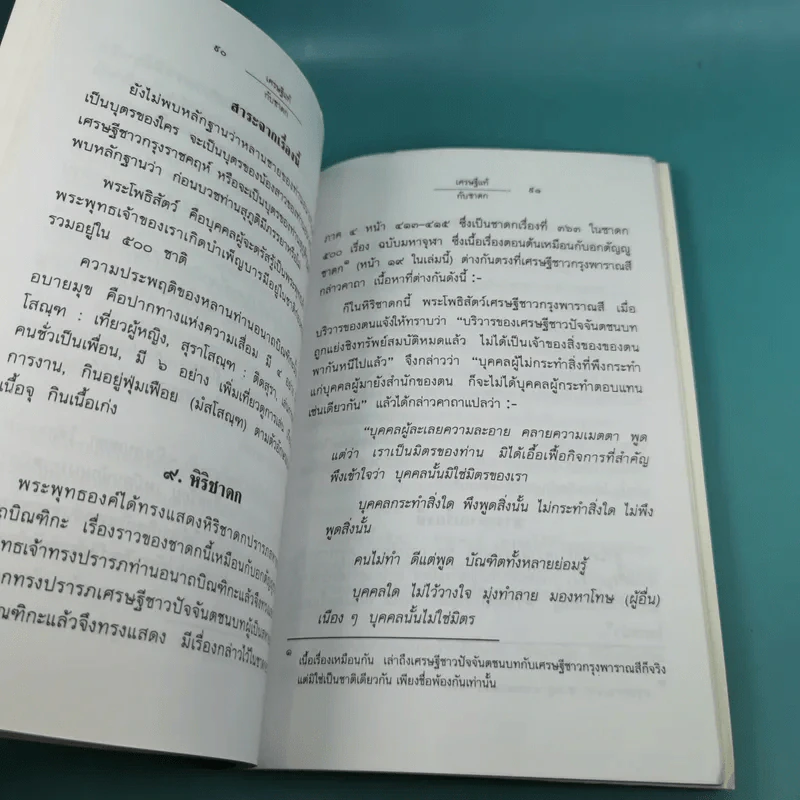 ๙๐
เศรษฐีแท้
กับชาดก
สาระจากเรื่องนี้
ยังไม่พบหลักฐานว่าหลานชายของท่าน
เป็นบุตรของใคร จะเป็นบุตรของน้องสาวของท่าน
เศรษฐีชาวกรุงราชคฤห์ หรือจะเป็นบุตรของท่าน
พบหลักฐานว่า ก่อนบวชท่านสุภูติมีภรรยาหรือไม่
พระโพธิสัตว์ คือบุคคลผู้จะตรัสรู้เป็นพระพุทธ
พระพุทธเจ้าของเราเกิดบำเพ็ญบารมีอยู่ในชาติ
รวมอยู่ใน ๕๐๐ ชาติ
ความประพฤติของหลานท่านอนาถบิณฑิก
อบายมุข คือปากทางแห่งความเสื่อม มี ๔ อย่าง
โสณฺฑ : เที่ยวผู้หญิง, สุราโสณฺฑ : ติดสุรา,
คนชั่วเป็นเพื่อน, มี ๖ อย่าง เพิ่มเที่ยวดูการเล่น
การงาน, กินอยู่ฟุ่มเฟือย (มํสโสณฺฑ) ตามตัวอักษร
เนื้อจุ กินเนื้อเก่ง
๙. หิริชาดก
พระพุทธองค์ได้ทรงแสดงหิริชาดกปรารภ
ถบิณฑิกะ เรื่องราวของชาดกนี้เหมือนกับอกตัญญุ
ทธเจ้าทรงปรารภท่านอนาถบิณฑิกะแล้วจึง
กทรงปรารภเศรษฐีชาวปัจจันตชนบทผู้เป็น
ณฑิกะแล้วจึงทรงแสดง มีเรื่องกล่าวไว้ใน
เศรษฐีแท้
กับชาดก
๙๑
ภาค ๔ หน้า ๔๑๓–๔๑๕ ซึ่งเป็นชาดกเรื่องที่ ๓๖๓ ในชาดก
๕๐๐ เรื่อง ฉบับมหาจุฬา ซึ่งเนื้อเรื่องตอนต้นเหมือนกับอกตัญญุ
ชาดก๑ (หน้า ๑๙ ในเล่มนี้) ต่างกันตรงที่เศรษฐีชาวกรุงพาราณสี
กล่าวคาถา เนื้อหาที่ต่างกันดังนี้ :-
ก็ในหิริชาดกนี้ พระโพธิสัตว์เศรษฐีชาวกรุงพาราณสี เมื่อ
บริวารของตนแจ้งให้ทราบว่า “บริวารของเศรษฐีชาวปัจจันตชนบท
ถูกแย่งชิงทรัพย์สมบัติหมดแล้ว ไม่ได้เป็นเจ้าของสิ่งของของตน
พากันหนีไปแล้ว” จึงกล่าวว่า “บุคคลผู้ไม่กระทำสิ่งที่พึงกระทำ
แก่บุคคลผู้มายังสำนักของตน ก็จะไม่ได้บุคคลผู้กระทำตอบแทน
เช่นเดียวกัน” แล้วได้กล่าวคาถาแปลว่า :-
“บุคคลผู้ละเลยความละอาย คลายความเมตตา พูด
แต่ว่า เราเป็นมิตรของท่าน มิได้เอื้อเฟื้อกิจการที่สำคัญ
พึงเข้าใจว่า บุคคลนั้นมิใช่มิตรของเรา
บุคคลกระทำสิ่งใด พึงพูดสิ่งนั้น ไม่กระทำสิ่งใด ไม่พึง
พูดสิ่งนั้น
คนไม่ทำ ดีแต่พูด บัณฑิตทั้งหลายย่อมรู้
บุคคลใด ไม่ไว้วางใจ มุ่งทำลาย มองหาโทษ (ผู้อื่น)
เนือง ๆ บุคคลนั้นไม่ใช่มิตร
๑ เนื้อเรื่องเหมือนกัน เล่าถึงเศรษฐีชาวปัจจันตชนบทกับเศรษฐีชาวกรุงพาราณสีก็จริง
แต่มิใช่เป็นชาติเดียวกัน เพียงชื่อพ้องกันเท่านั้น